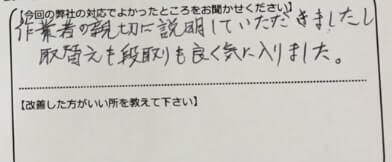 【今回の弊社の対応でよかったところをお聞かせください】
作業者の親切に説明していただきましたし
取替えも段取りも良く気に入りました。
【改善した方がいい所を教えて下さい】